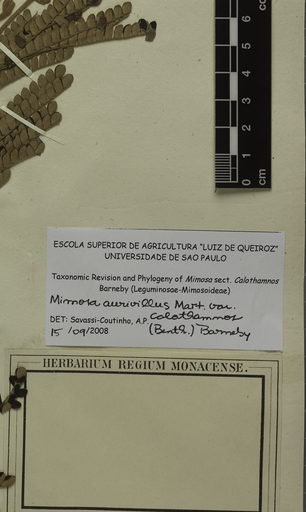 6
5
4
3
2
1
0
cm
ESCOLA SUPERIOR DE AGRICULTURA "LUIZ DE QUEIROZ"
UNIVERSIDADE DE SAO PAULO
Taxonomic Revision and Phylogeny of Mimosa sect. Calothamnos
Barneby (Leguminosae-Mimosoideae)
Mimosa aurivillus Mart. var.
calothamnos
DET: Savassi-Coutinho, A.P.
(Benth.) Barneby
15 /09/2008
HERBARIUM REGIUM MONACENSE.